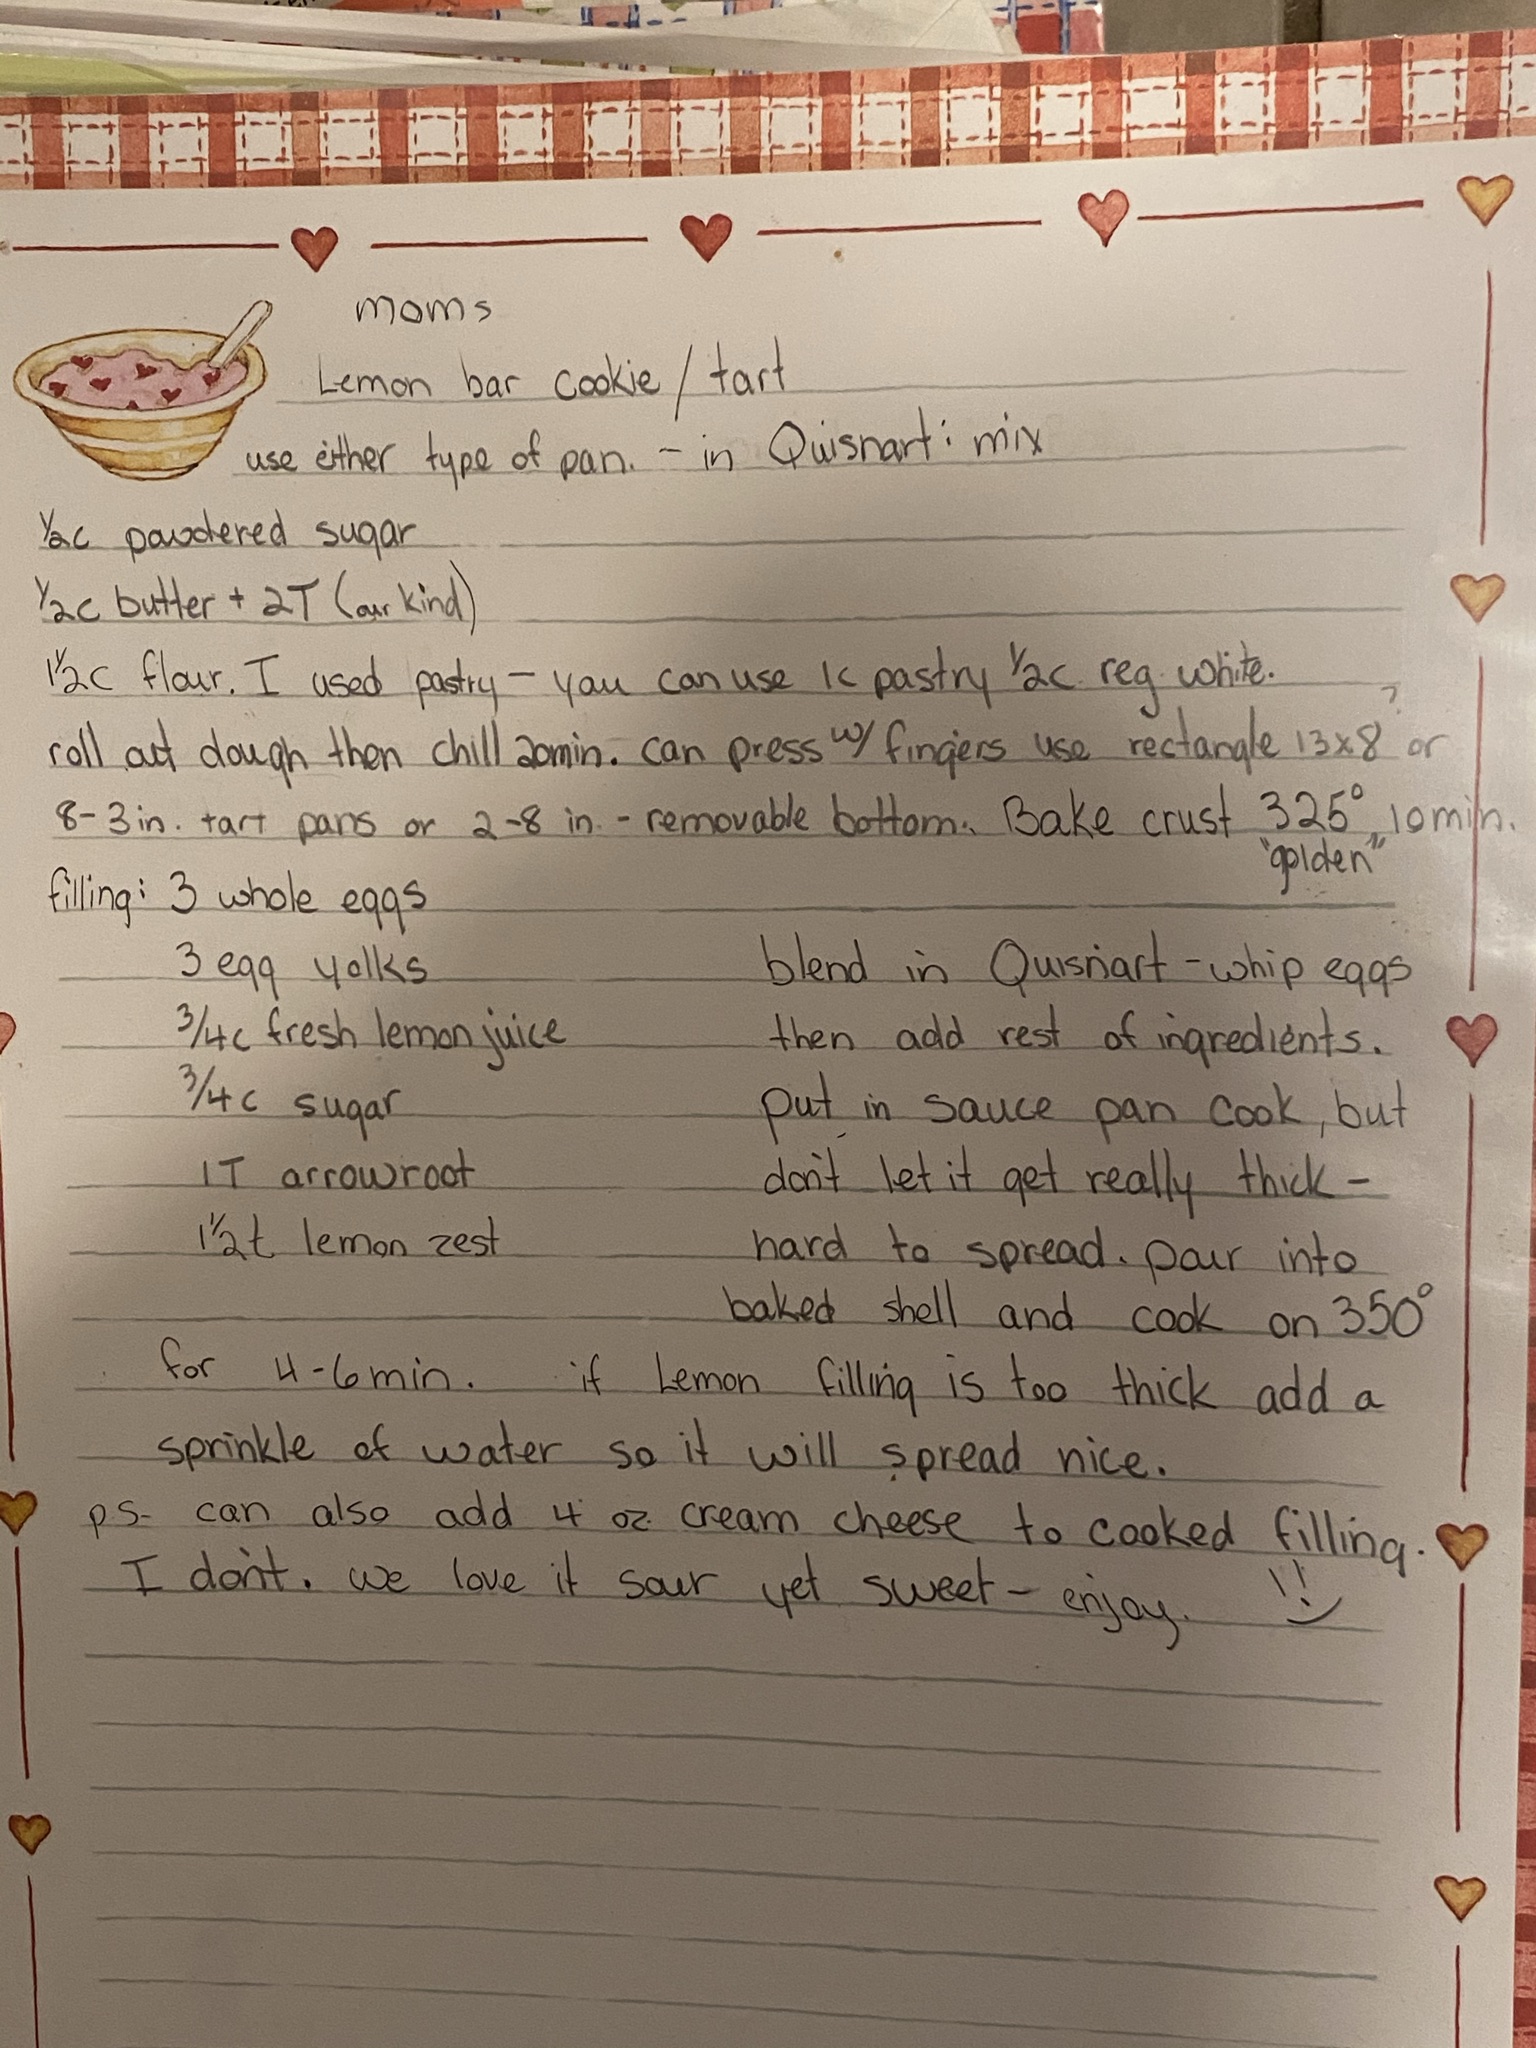 moms
Lemon bar cookie / tart
use either type of pan. - in Quisnart: mix
1/2c powdered sugar
1/2c butter + 2T (our kind)
1 1/2c flour. I used pastry - you can use 1c pastry 1/2c reg. white.
roll out dough then chill 20min. can press w/ fingers use rectangle 13x8? or
8-3in. tart pans or 2-8 in. - removable bottom. Bake crust 325° 10min.
"golden"
filling: 3 whole eggs
3 egg yolks
3/4c fresh lemon juice
3/4c sugar
1T arrowroot
1 1/2t lemon zest
blend in Quisnart - whip eggs
then add rest of ingredients.
put in sauce pan cook, but
don't let it get really thick -
hard to spread. pour into
baked shell and cook on 350°
for 4-6min. if Lemon filling is too thick add a
sprinkle of water so it will spread nice.
p.s. can also add 4 oz. cream cheese to cooked filling.
I don't. we love it sour yet sweet - enjoy. !!